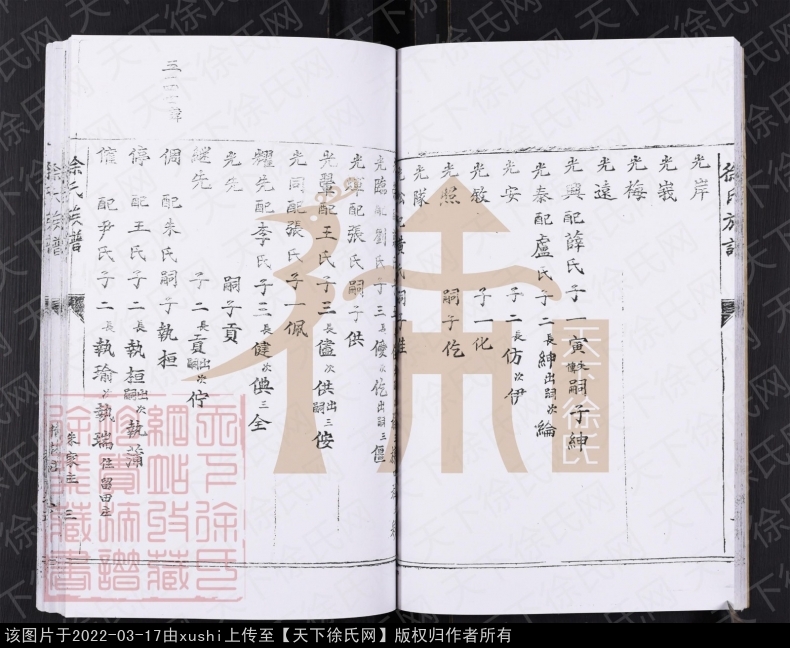 徐氏族譜
光岸
光峩
光梅
光遠
光興配薛氏子一寅 嗣子紳
光泰配盧氏子二長紳出嗣次綸
光安 子二長仿次伊
光敏 子一化
光照 嗣子仡
光隊
光臨配劉氏子三長 次仡出嗣三偃
光輝配張氏嗣子供
光舉配王氏子三長儘次供出嗣三侒
光同配張氏子一佩
耀先配李氏子三長健次倎三全
光先 嗣子貢
继先 子二長貢出嗣次佇
倜配朱氏嗣子執桓
停配王氏子二長執桓出嗣次執
偩配尹氏子二長執瑜次執瑞住留田庄
徐氏族譜
朱家庄 三
天下徐氏
天下徐氏网
该图片于2022-03-17由xushi上传至【天下徐氏网】版权归作者所有